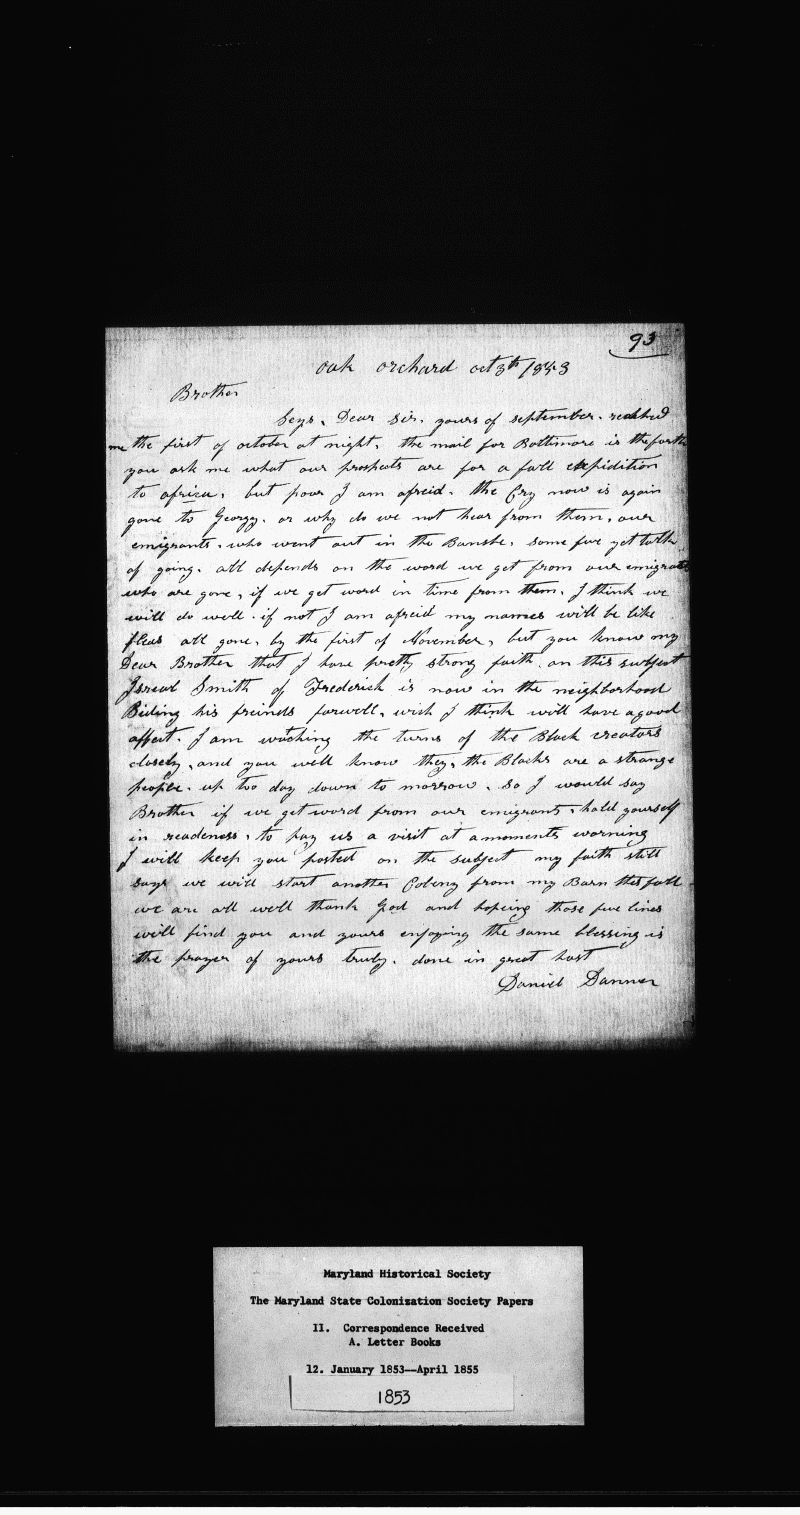 93
oak orchard oct 3th 1853
Brother
Seys, Dear Sir. yours of september. reached
me the first of october at night. the mail for Baltimore is the forth
you ask me what our prospects are for a fall expidition
to africa, but poor I am afreid. the Cry now is again
gone to Georgy. or why do we not hear from them, our
emigrants. who went out in the Banshe. some few yet talk
of going. all depends on the word we get from our emigrants
who are gone, if we get word in time from them. I think we
will do well. if not I am afreid my names will be like
fleas all gone, by the first of November, but you know my
Dear Brother that I have pretty strong faith on this subject
Isreal Smith of Frederick is now in the neighborhood
Biding his freinds farwell, wich I think will have a good
affect. I am watching the turns of the Black creators
closely, and you well know they, the Blacks are a strange
people. up too day down to morrow. so I would say
Brother if we get word from our emigrants. hold yourself
in readeness. to pay us a visit at a moments warning
I will keep you posted on the subject my faith still
says we will start another Coleny from my Barn this fall
we are all well thank God and hopeing those few lines
will find you and yours enjoying the same blessing is
the prayer of yours truly. done in great hast
Daniel Danner
Maryland Historical Society
The Maryland State Colonization Society Papers
II. Correspondence Received
A. Letter Books
12. January 1853--April 1855
1853